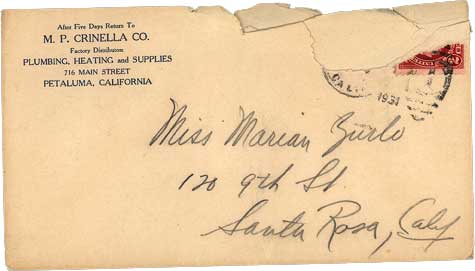 After Five Days Return To
M. P. CRINELLA CO.
Factory Distributors
PLUMBING, HEATING and SUPPLIES
716 MAIN STREET
PETALUMA, CALIFORNIA
1931
Miss Marian Zurlo
120 9th St.
Santa Rosa, Calif